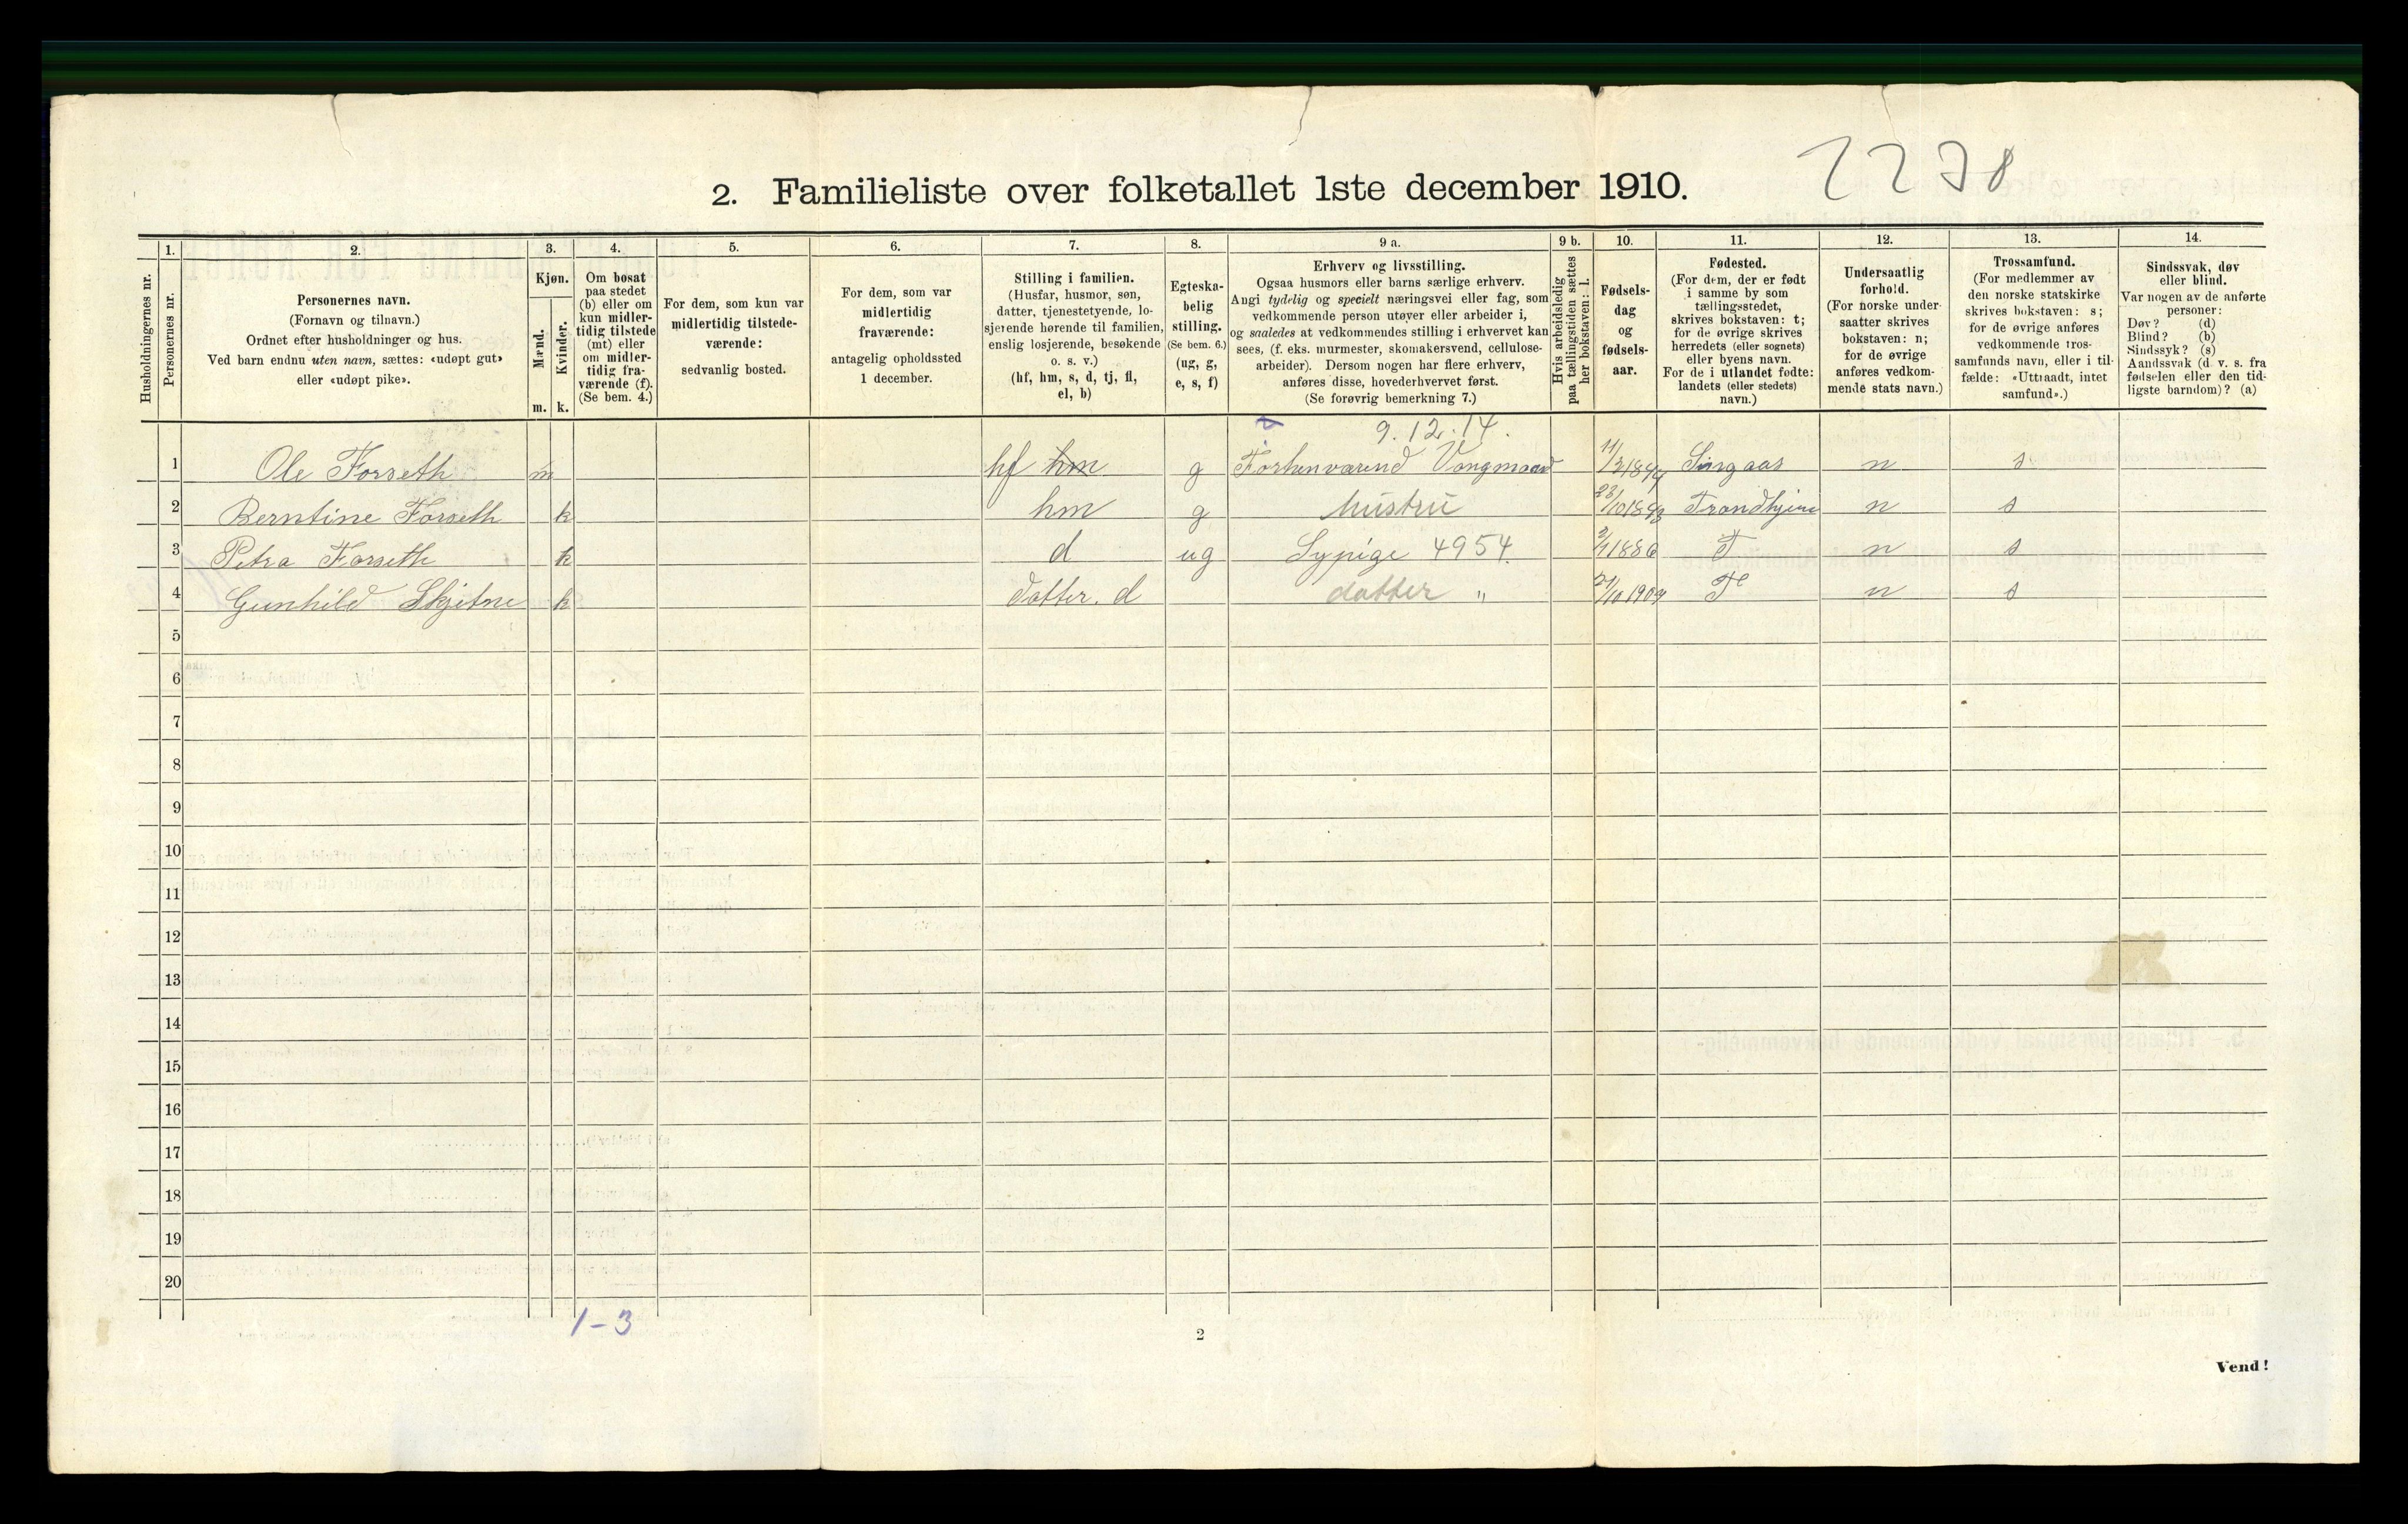 2238
2. Familieliste over folketallet 1ste december 1910.
Husholdningernes nr.
1. Personernes nr.
2. Personernes navn.
(Fornavn og tilnavn.)
Ordnet efter husholdninger og hus.
Ved barn endnu uten navn, sættes: «udøpt gut»
eller «udøpt pike».
3. Kjøn.
Mænd. m.
Kvinder. k.
4. Om bosat
paa stedet
(b) eller om
kun midler-
tidig tilstede
(mt) eller
om midler-
tidig fra-
værende (f).
(Se bem. 4.)
5. For dem, som kun var
midlertidig tilstede-
værende:
sedvanlig bosted.
6. For dem, som var
midlertidig
fraværende:
antagelig opholdssted
1 december.
7. Stilling i familien.
(Husfar, husmor, søn,
datter, tjenestetyende, lo-
sjerende hørende til familien,
enslig losjerende, besøkende
o. s. v.)
(hf, hm, s, d, tj, fl,
el, b)
8. Egteska-
belig
stilling.
(Se bem. 6.)
(ug, g,
e, s, f)
9 a. Erhverv og livsstilling.
Ogsaa husmors eller barns særlige erhverv.
Angi tydelig og specielt næringsvei eller fag, som
vedkommende person utøver eller arbeider i,
og saaledes at vedkommendes stilling i erhvervet kan
sees, (f. eks. murmester, skomakersvend, cellulose-
arbeider). Dersom nogen har flere erhverv,
anføres disse, hovederhvervet først.
(Se forøvrig bemerkning 7.)
9 b. Hvis arbeidsledig
paa tællingstiden sættes
her bokstaven: l.
10. Fødsels-
dag
og
fødsels-
aar.
11. Fødested.
(For dem, der er født
i samme by som
tællingsstedet,
skrives bokstaven: t;
for de øvrige skrives
herredets (eller sognets)
eller byens navn.
For de i utlandet fødte:
landets (eller stedets)
navn.)
12. Undersaatlig
forhold.
(For norske under-
saatter skrives
bokstaven: n;
for de øvrige
anføres vedkom-
mende stats navn.)
13. Trossamfund.
(For medlemmer av
den norske statskirke
skrives bokstaven: s;
for de øvrige anføres
vedkommende tros-
samfunds navn, eller i til-
fælde: «Uttraadt, intet
samfund».)
14. Sindssvak, døv
eller blind.
Var nogen av de anførte
personer:
Døv? (d)
Blind? (b)
Sindssyk? (s)
Aandssvak (d. v. s. fra
fødselen eller den tid-
ligste barndom)? (a)
9.12.14.
1 Ole Forseth m hf hm g Forhenværend Vongmand 11/2 1844 Singsaas n s
2 Berntine Forseth k hm g hustru 23/10 1843 Trondhjem n s
3 Petra Forseth k d ug Sypige 4954. 2/1 1886 T n s
4 Gunhild Skjetne k datter. d datter " 27/10 1904 T n s
5
6
7
8
9
10
11
12
13
14
15
16
17
18
19
20
1-3
2
Vend!